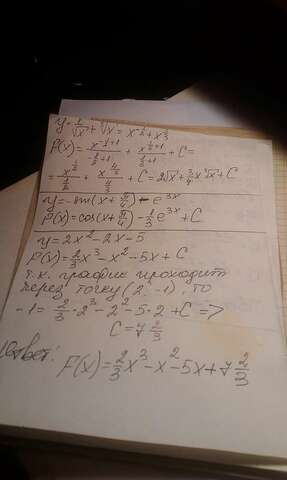 y = 1/√x + ∛x = x^(-1/2) + x^(1/3)
F(x) = x^(-1/2+1)/(-1/2+1) + x^(1/3+1)/(1/3+1) + C =
= x^(1/2)/(1/2) + x^(4/3)/(4/3) + C = 2√x + 3/4 x∛x + C
y = -sin(x + π/4) - e^(3x)
F(x) = cos(x + π/4) - 1/3 e^(3x) + C
y = 2x² - 2x - 5
F(x) = 2/3 x³ - x² - 5x + C
т.к. график проходит
через точку (2; -1), то
-1 = 2/3 · 2³ - 2² - 5·2 + C =>
C = 7 2/3
Ответ:
F(x) = 2/3 x³ - x² - 5x + 7 2/3